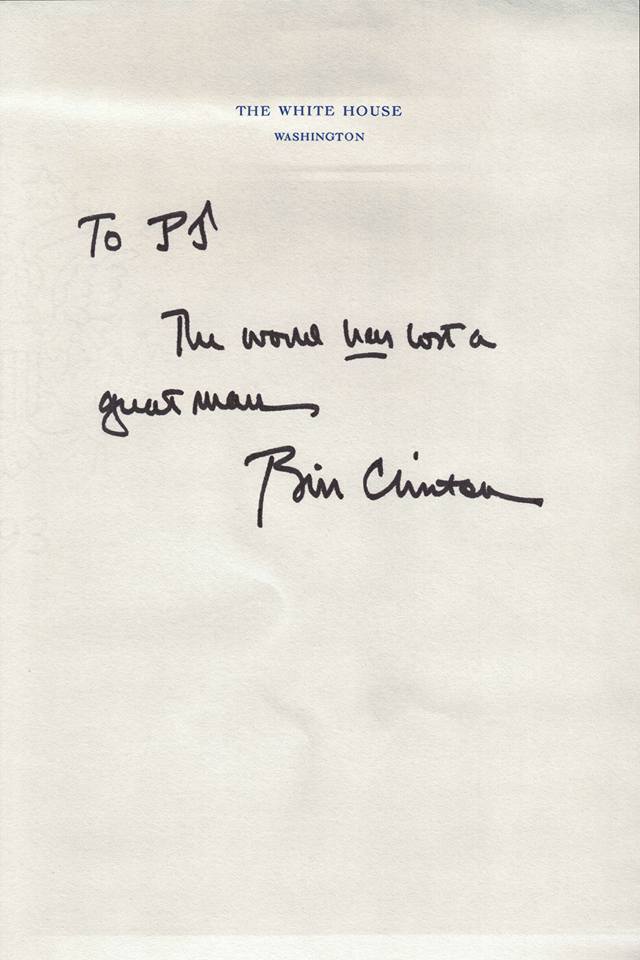 THE WHITE HOUSE
WASHINGTON
To PJ
The world has lost a
great man
Bill Clinton